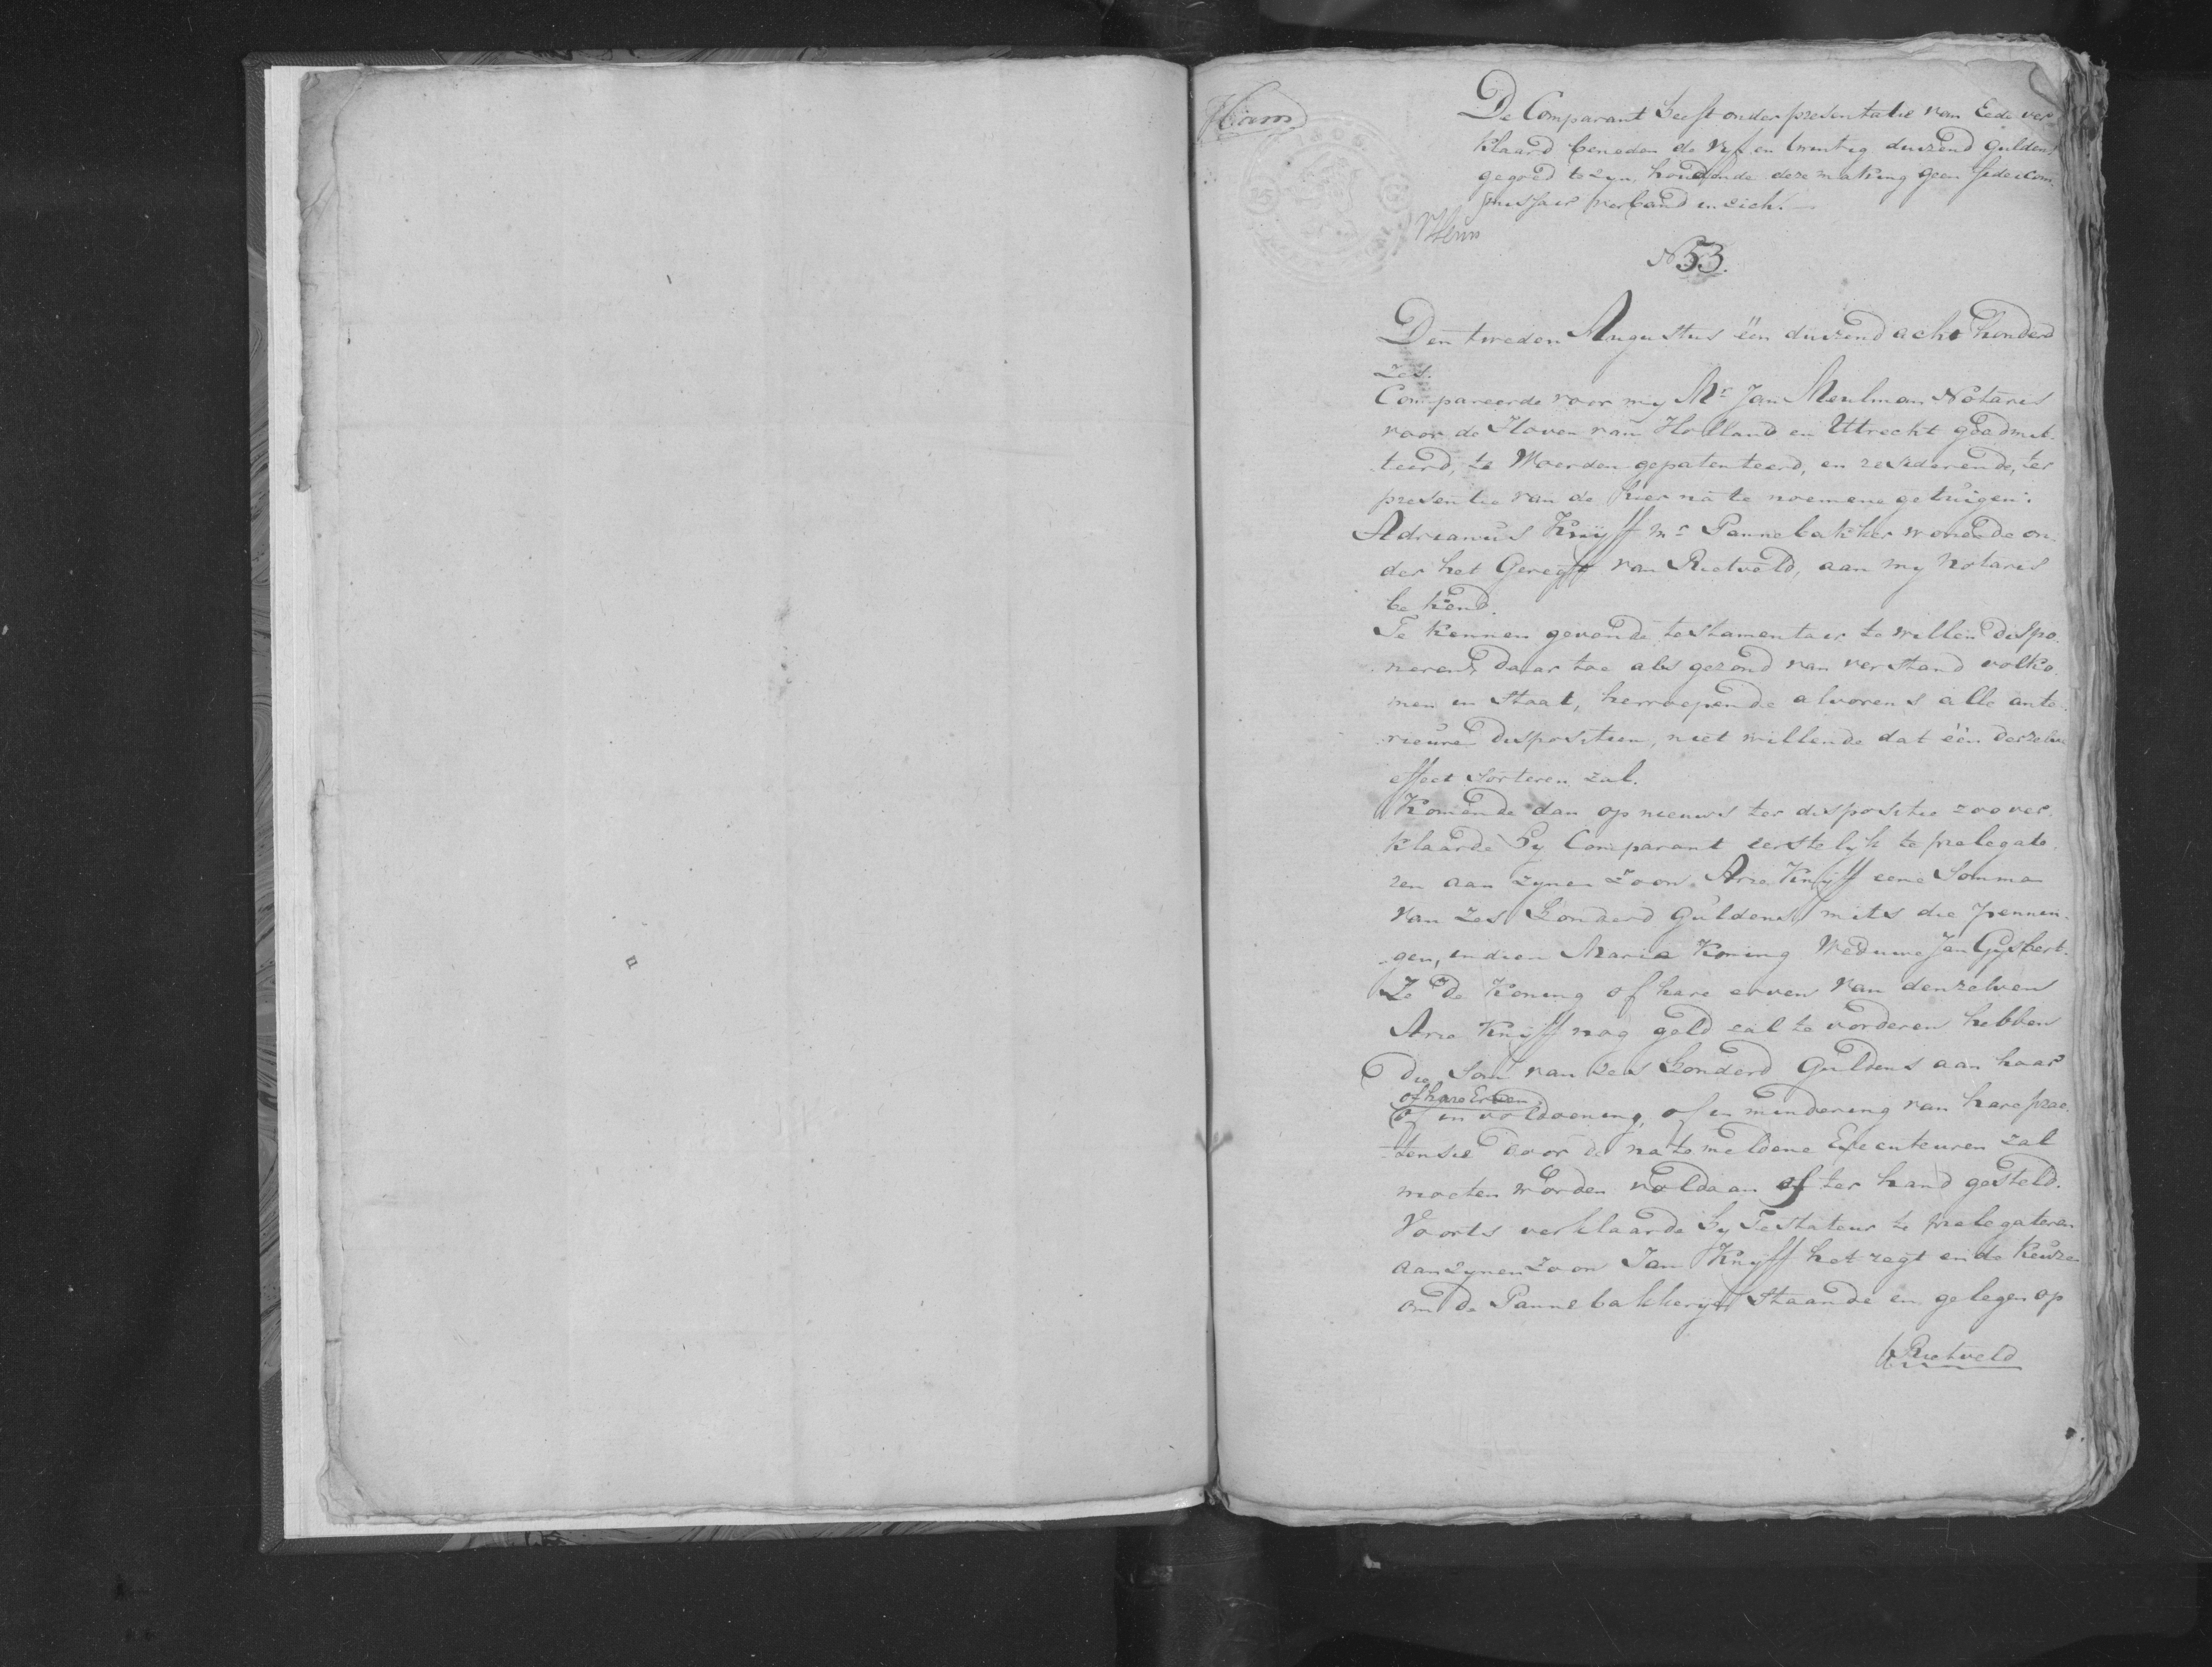 De Comparant heeft onder presentatie van Eede ver
klaard beneden de vyf en twintig duizend guldens
gegoed te zyn, houdende deze making geen fideicom
missair verband in zich.
N 53.
Den tweeden Augustus één duizend acht honderd
zes.
Compareerde voor my Mr Jan Meulman Notaris
voor de Hoven van Holland en Uttrecht geadmit-
teerd, te Woerden gepatenteerd, en resideerende, ter
presentie van de hier na te noemene getuigen:
Adrianus Knijff Mr Pannebakker wonende on-
der het Geregt van Rietveld, aan my Notaris
bekend.
Te kennen gevende testamentair te willen dispo-
neren, daar toe als gezond van verstand volko-
men in staat, herroepende alvorens alle ante-
rieure dispositien, niet willende dat één derzelve
effect sorteren zal.
Komende dan op nieuws ter dispositie zoo ver-
klaarde hy Comparant eerstelyk te prelegate-
ren aan zynen Zoon Arie Knijff eene Somma
van zes honderd guldens, mits die pennin-
gen, indien Maria Koning Weduwe Jan Gysbert-
ze de Koning of hare erven van denzelven
Arie Knijff nog geld zal te vorderen hebben
die Som van zes honderd Guldens aan haar
of hare Erven
of in voldoening, of in mindering van hare prae-
tensie door de na te meldene Executeuren zal
moeten worden voldaan of ter hand gesteld.
Voorts verklaarde hy Testateur te prelegateren
aan zynen Zoon Jan Knijff het regt en de keuze
om de Pannebakkeryen staande en gelegen op
Rietveld